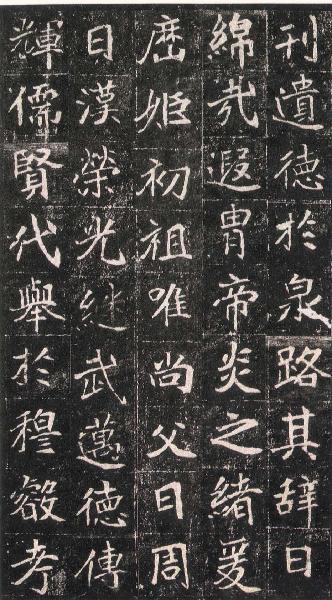 刊遺德於泉路其辭曰
綿㢤遐胄帝炎之緒爰
歴姬初祖唯尚父曰周
曰漢榮光継武邁德傳
輝儒賢代舉於穆叡考